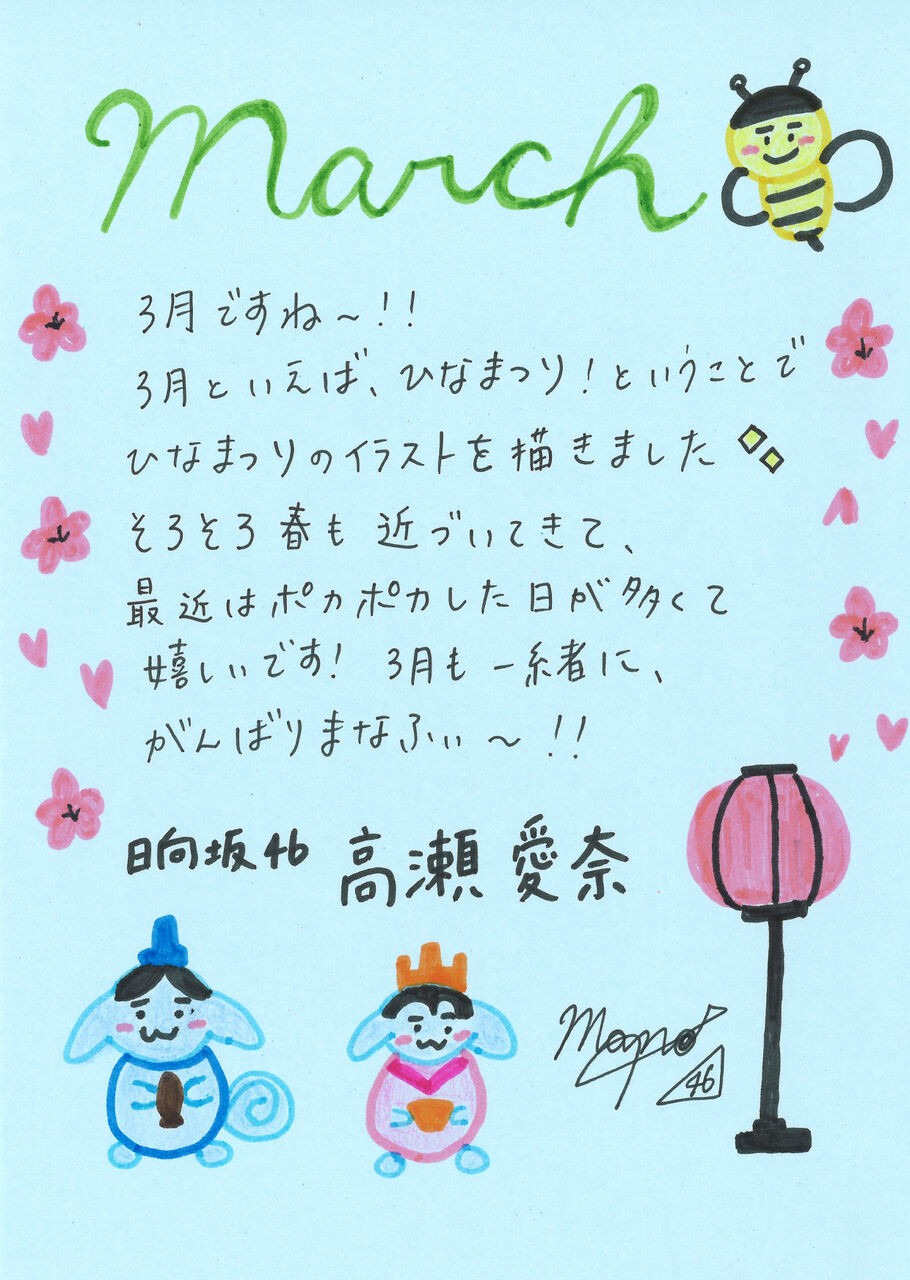 March
3月ですね～!!
3月といえば、ひなまつり!ということで
ひなまつりのイラストを描きました
そろそろ春も近づいてきて、
最近はポカポカした日が多くて
嬉しいです! 3月も一緒に、
がんばりまなふぃ～!!
日向坂46 高瀬愛奈
46